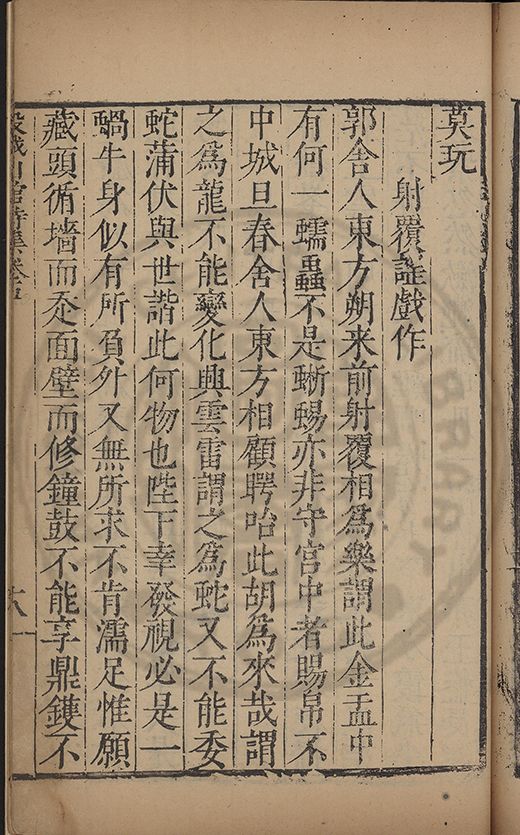 莫玩
射覆謎戲作
郭舍人東方朔來前射覆相為樂謂此金盂中
有何一蠕蟲不是蜥蜴亦非守宮中者賜帛不
中城旦舂舍人東方相顧愕咍此胡為來哉謂
之為龍不能變化興雲雷謂之為蛇又不能委
蛇蒲伏與世諧此何物也陛下幸發視必是一
蝸牛身似有所負外又無所求不肯濡足惟願
藏頭循墻而走面壁而修鐘鼓不能享鼎鑊不
穀城山館詩集卷五